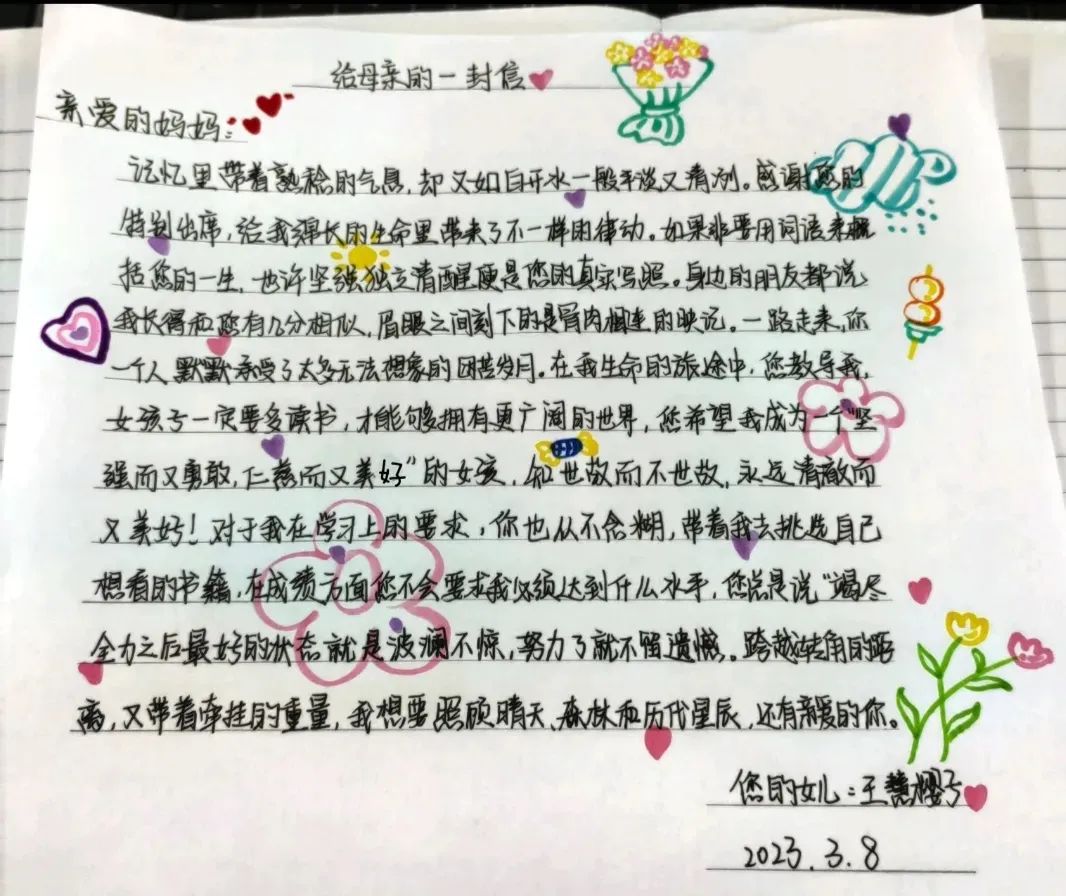 给母亲的一封信
亲爱的妈妈：
记忆里带着熟稔的气息，却又如白开水一般平淡又清冽。感谢您的
特别出席，给我绵长的生命里带来了不一样的律动。如果非要用词语来概
括您的一生，也许坚强独立清醒便是您的真实写照。身边的朋友都说
我长得和您有几分相似，眉眼之间刻下的是骨肉相连的映记。一路走来，你
一个人默默承受了太多无法想象的困苦岁月。在我生命的旅途中，您教导我，
女孩子一定要多读书，才能够拥有更广阔的世界，您希望我成为一个“坚
强而又勇敢，仁慈而又美好”的女孩，知世故而不世故，永远清澈而
又美好！对于我在学习上的要求，你也从不含糊，带着我去挑选自己
想看的书籍，在成绩方面您不会要求我必须达到什么水平，您总是说“竭尽
全力之后最好的状态就是波澜不惊，努力了就不留遗憾。跨越转角的距
离，又带着牵挂的重量，我想要照顾晴天、森林和历代星辰，还有亲爱的你。
您的女儿：王慧
2023.3.8